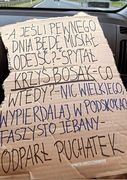 "A JEŚLI PEWNEGO
DNIA BĘDĘ MUSIAŁ
ODEJŚĆ?-SPYTAŁ
KRZYŚ BOSAK-CO
WTEDY?-NIC WIELKIEGO,
WYPIERDALAJ W PODSKOKACH
FASZYSTO JEBANY-
ODPARŁ PUCHATEK